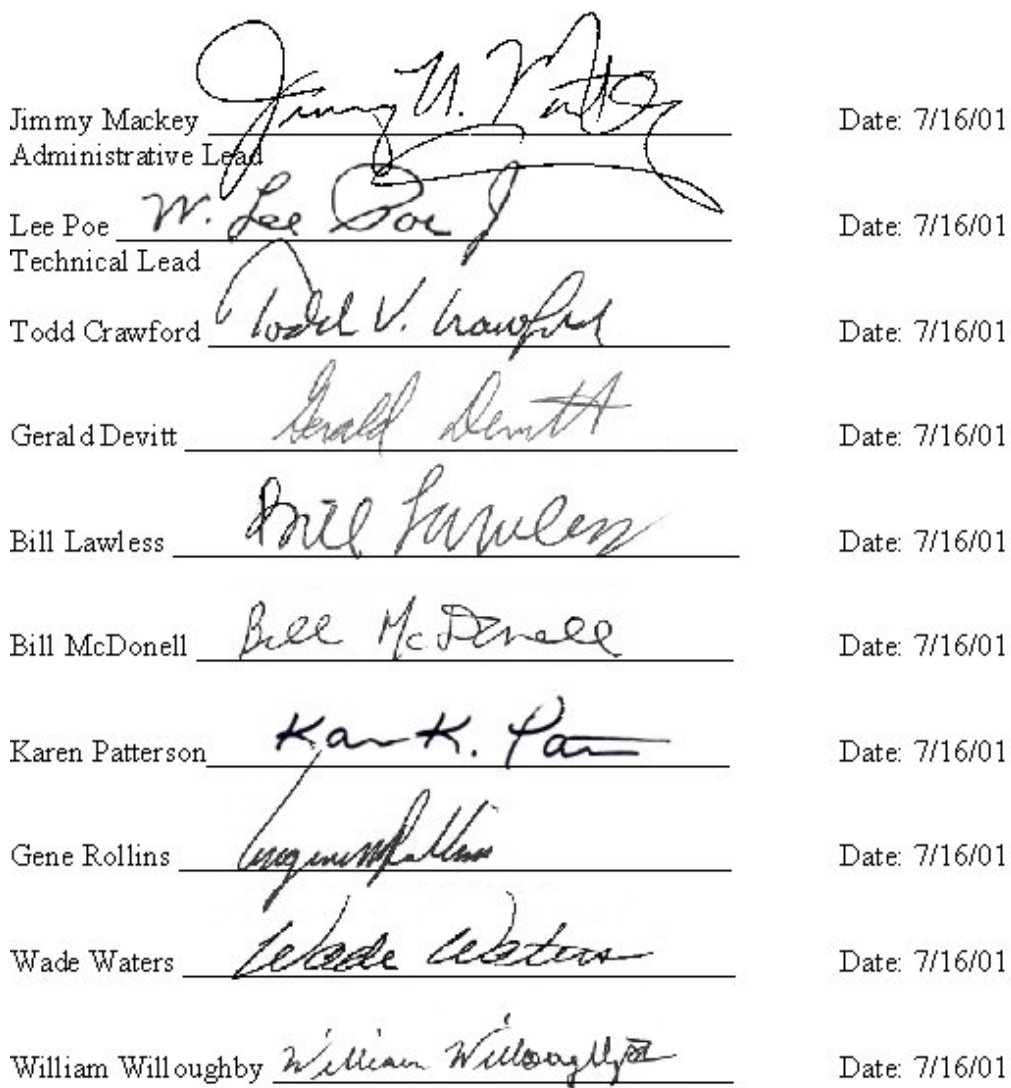 Jimmy Mackey Jimmy N. Mackey Date: 7/16/01
Administrative Lead
Lee Poe W. Lee Poe J Date: 7/16/01
Technical Lead
Todd Crawford Todd V. Crawford Date: 7/16/01
Gerald Devitt Gerald Devitt Date: 7/16/01
Bill Lawless Bill Lawless Date: 7/16/01
Bill McDonell Bill McDonell Date: 7/16/01
Karen Patterson Karen K. Pat Date: 7/16/01
Gene Rollins Rollins Date: 7/16/01
Wade Waters Wade Waters Date: 7/16/01
William Willoughby William Willoughby Date: 7/16/01